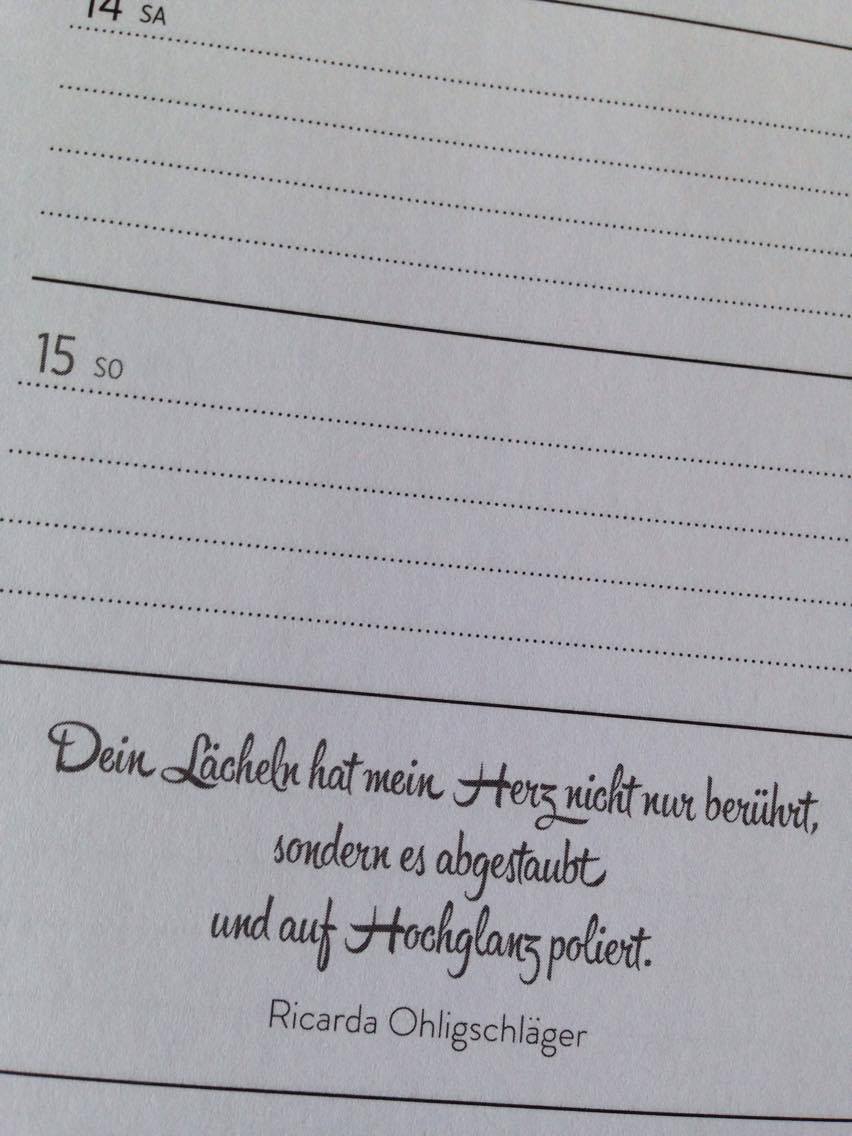 14 SA
15 SO
Dein Lächeln hat mein Herz nicht nur berührt,
sondern es abgestaubt
und auf Hochglanz poliert.
Ricarda Ohligschläger